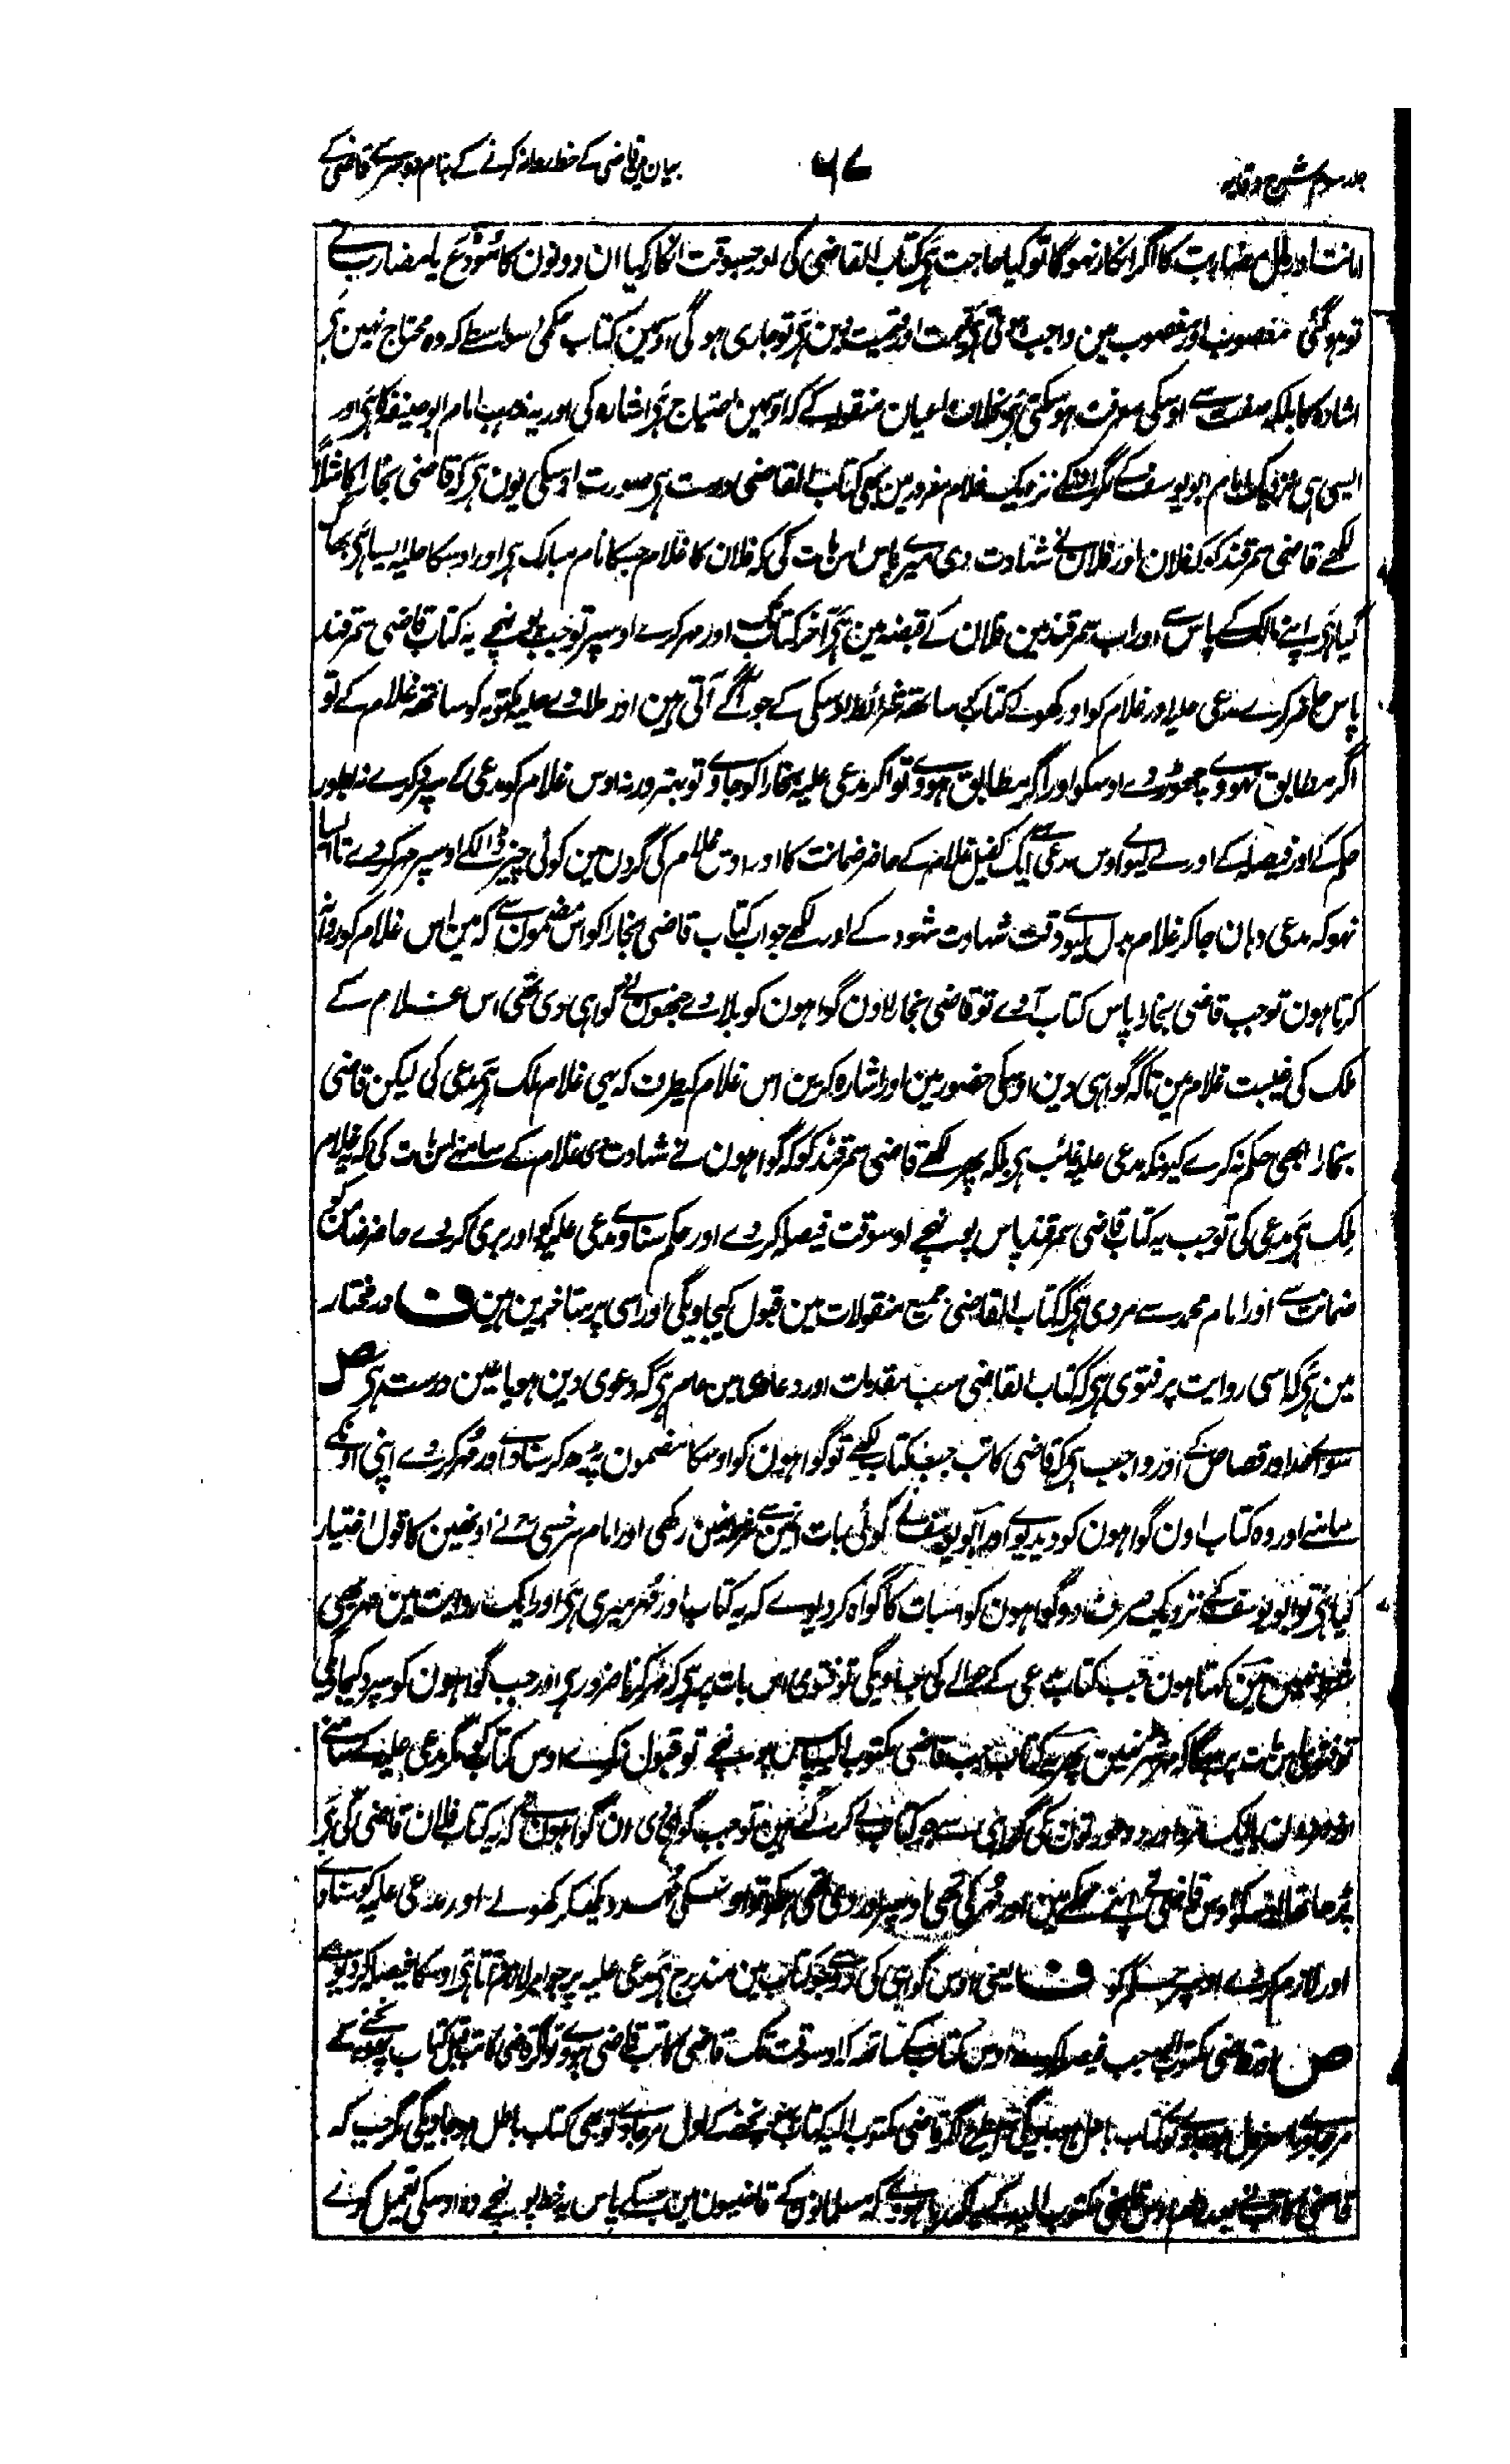 جلد سوم شرح وقایہ
۶۷
بیان میں قاضی کے خط روانہ کرنے کے بنام دوسرے قاضی کے
امانت اور مال مضاربت کا اگر انکار نہوگا تو کیا حاجت ہی کتاب القاضی کی اور جسوقت انکار کیا ان دونون کا مُودَع یا مضارب نے
تو ہو گئی مغصوب اور مغصوب مین واجب ہوتی ہی قیمت اور قیمت دین ہی تو جاری ہو گی اوسمین کتاب حکمی اسواسطے کہ وہ محتاج نہین ہی
اشارہ کا بلکہ صفت سے اوسکی معرفت ہو سکتی ہی بخلاف اعیان منقولہ کے کہ اوسمین احتیاج ہی اشارہ کی اور یہ مذہب امام ابو حنیفہ کا ہی اور
ایسی ہی نزدیک امام ابو یوسف کے مگر اونکے نزدیک غلام مفرور مین بھی کتاب القاضی درست ہی صورت اوسکی یون ہی کہ قاضی بخارا کا مثلاً
لکھے قاضی سمرقند کو کہ فلان اور فلان نے شہادت دی میرے پاس اس بات کی کہ فلان کا غلام جسکا نام مبارک ہی اور اوسکا حلیہ ایسا ہی بھاگ
گیا ہی اپنے مالک کے پاس سے اور اب سمرقند مین فلان کے قبضہ مین ہی آخر کتاب تک اور مہر کرے اوسپر تو جب پہونچے یہ کتاب قاضی سمرقند
پاس حاضر کرے مدعی علیہ اور غلام کو اور کھولے کتاب کو ساتھ شرائط اوسکی کے جو آگے آتی ہین اور ملاوے حلیہ مکتوبہ کو ساتھ غلام کے تو
اگر مطابق نہووے چھوڑ دے اوسکو اور اگر مطابق ہووے تو اگر مدعی علیہ بخارا کو جاوے تو بہتر ورنہ اوس غلام کو مدعی کے سپرد کرے نہ بطور
حکم کے اور فیصلہ کے اور لے لیوے اوس مدعی سے ایک کفیل غلام کے حاضر ضمانت کا اور اوس غلام کی گردن مین کوئی چیز ڈالکے اوسپر مہر کردے تا ایسا
نہو کہ مدعی وہان جا کر غلام بدل لیوے وقت شہادت شہود کے اور لکھے جواب کتاب قاضی بخارا کو اس مضمون سے کہ مین اس غلام کو روانہ
کرتا ہون تو جب قاضی بخارا پاس کتاب آوے تو قاضی بخارا اون گواہون کو بلاوے جنھون نے گواہی دی تھی اس غلام کے
ملک کی غیبت غلام مین تا کہ گواہی دین اوسکی حضور مین اور اشارہ کرین اس غلام کیطرف کہ یہی غلام ملک ہی مدعی کی لیکن قاضی
بخارا ابھی حکم نہ کرے کیونکہ مدعی علیہ غائب ہی بلکہ پھر لکھے قاضی سمرقند کو کہ گواہون نے شہادت دی غلام کے سامنے اس بات کی کہ یہ غلام
ملک ہی مدعی کی تو جب یہ کتاب قاضی سمرقند پاس پہونچے اوسوقت فیصلہ کردے اور حکم سناوے مدعی علیہ کو اور بری کردے حاضر ضامن کو
ضمانت سے اور امام محمد سے مروی ہی کہ کتاب القاضی جمیع منقولات مین قبول کیجاویگی اور اسی پر متاخرین ہین ف در مختار
مین ہی کہ اسی روایت پر فتوی ہی کہ کتاب القاضی سب مقدمات اور دعاوی مین عام ہی کہ دعوی دین ہو یا عین درست ہی ص
سواے حد اور قصاص کے اور واجب ہی کہ قاضی کاتب جب کتاب لکھے تو گواہون کو اوسکا مضمون پڑھ کر سناوے اور مہر کردے اپنی اونکے
سامنے اور وہ کتاب اون گواہون کو دیدیوے اور ابو یوسف نے کوئی بات انمین سے شرط نہین رکھی اور امام سرخسی رح نے اونھین کا قول اختیار
کیا ہی تو ابو یوسف کے نزدیک صرف دو گواہون کو اسبات کا گواہ کر دیوے کہ یہ کتاب اور مہر میری ہی اور ایک روایت مین مہر بھی
شرط نہین مین کہتا ہون جب کتاب مدعی کے حوالے کی جاویگی تو فتوی اس بات پر ہی کہ مہر کرنا ضرور ہی اور جب گواہون کو سپرد کیجاویگی
تو فتوی اس بات پر ہیگا کہ مہر شرط نہین پھر یہ کتاب جب قاضی مکتوب الیہ پاس پہونچے تو قبول نکرے اوس کتاب کو مگر مدعی علیہ کے سامنے
اور دو مردون یا ایک مرد اور دو عورتون کی گواہی سے جو کتاب لے کر گئے ہین تو جب گواہی دی اون گواہون نے کہ یہ کتاب فلان قاضی کی ہی
پڑھا تھا اوسکو اوس قاضی نے اپنے محکمے مین اور مہر کی تھی اوسپر اور دی تھی ہمکو تو اوسکی مہر دیکھکر کھولے اور مدعی علیہ کو سناوے
اور لازم کردے اوسپر حکم کو ف یعنی اوس گواہی کی رو سے جو کتاب مین مندرج ہی مدعی علیہ پر جو امر لازم آتا ہی اوسکا فیصلہ کر دیوے
ص اور قاضی مکتوب الیہ جب فیصلہ کرے اوس کتاب کے ساتھ کہ اوسوقت تک قاضی کاتب قاضی ہووے تو اگر قاضی کاتب قبل کتاب پہونچنے کے
مرجاوے یا معزول ہو جاوے تو کتاب باطل ہو جاویگی اسیطرح اگر قاضی مکتوب الیہ کتاب پہونچنے کے اول مرجاوے تو بھی کتاب باطل ہو جاویگی مگر جب کہ
قاضی کاتب نے بعد نام اوس قاضی مکتوب الیہ کے یہ لکھدیا ہووے کہ مسلمانون کے قاضیون مین جسکے پاس یہ خط پہونچے وہ اوسکی تعمیل کرے